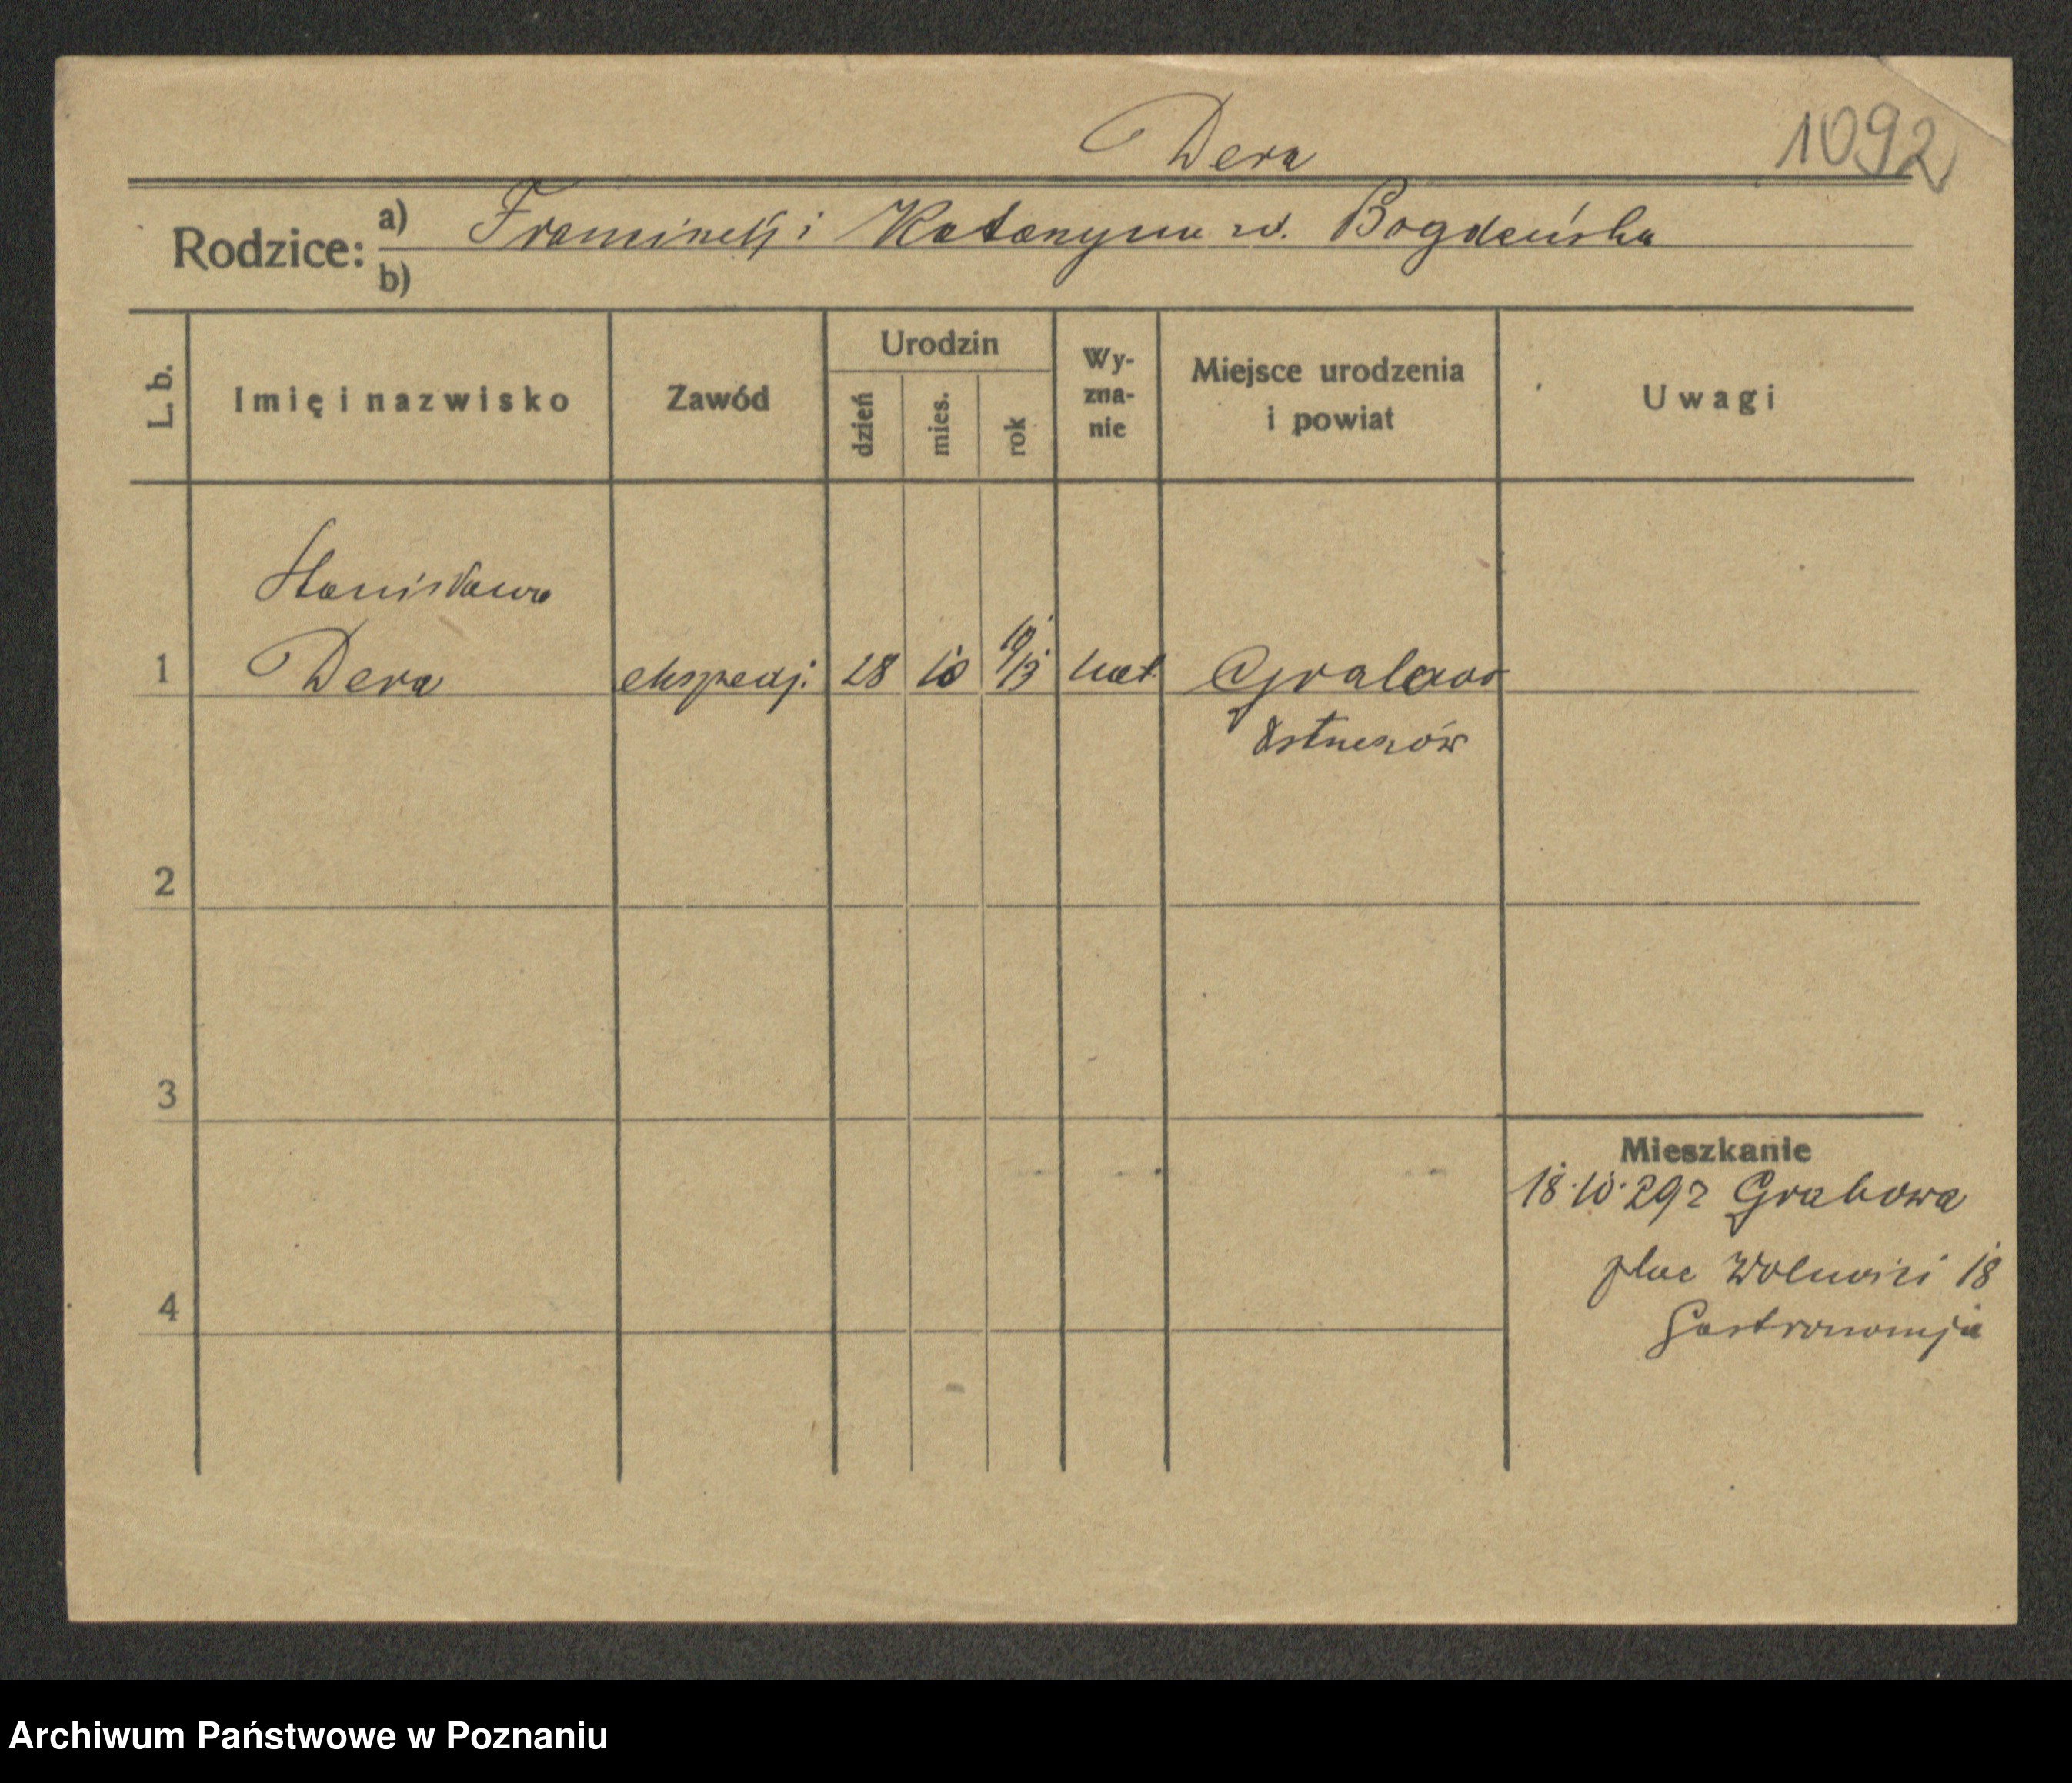 Dera
1092
Rodzice:
a) Franciszek i Katarzyna w. Bogdańska
b)
L. b.
Imię i nazwisko
Zawód
Urodzin
dzień
mies.
rok
Wy-
zna-
nie
Miejsce urodzenia
i powiat
Uwagi
Stanisława
1 Dera ekspedj. 28 10 19/13 kat. Grabow
Ostrzeszów
2
3
4
Mieszkanie
18.10.29 z Grabowa
plac Wolności 18
Gastronomja
Archiwum Państwowe w Poznaniu